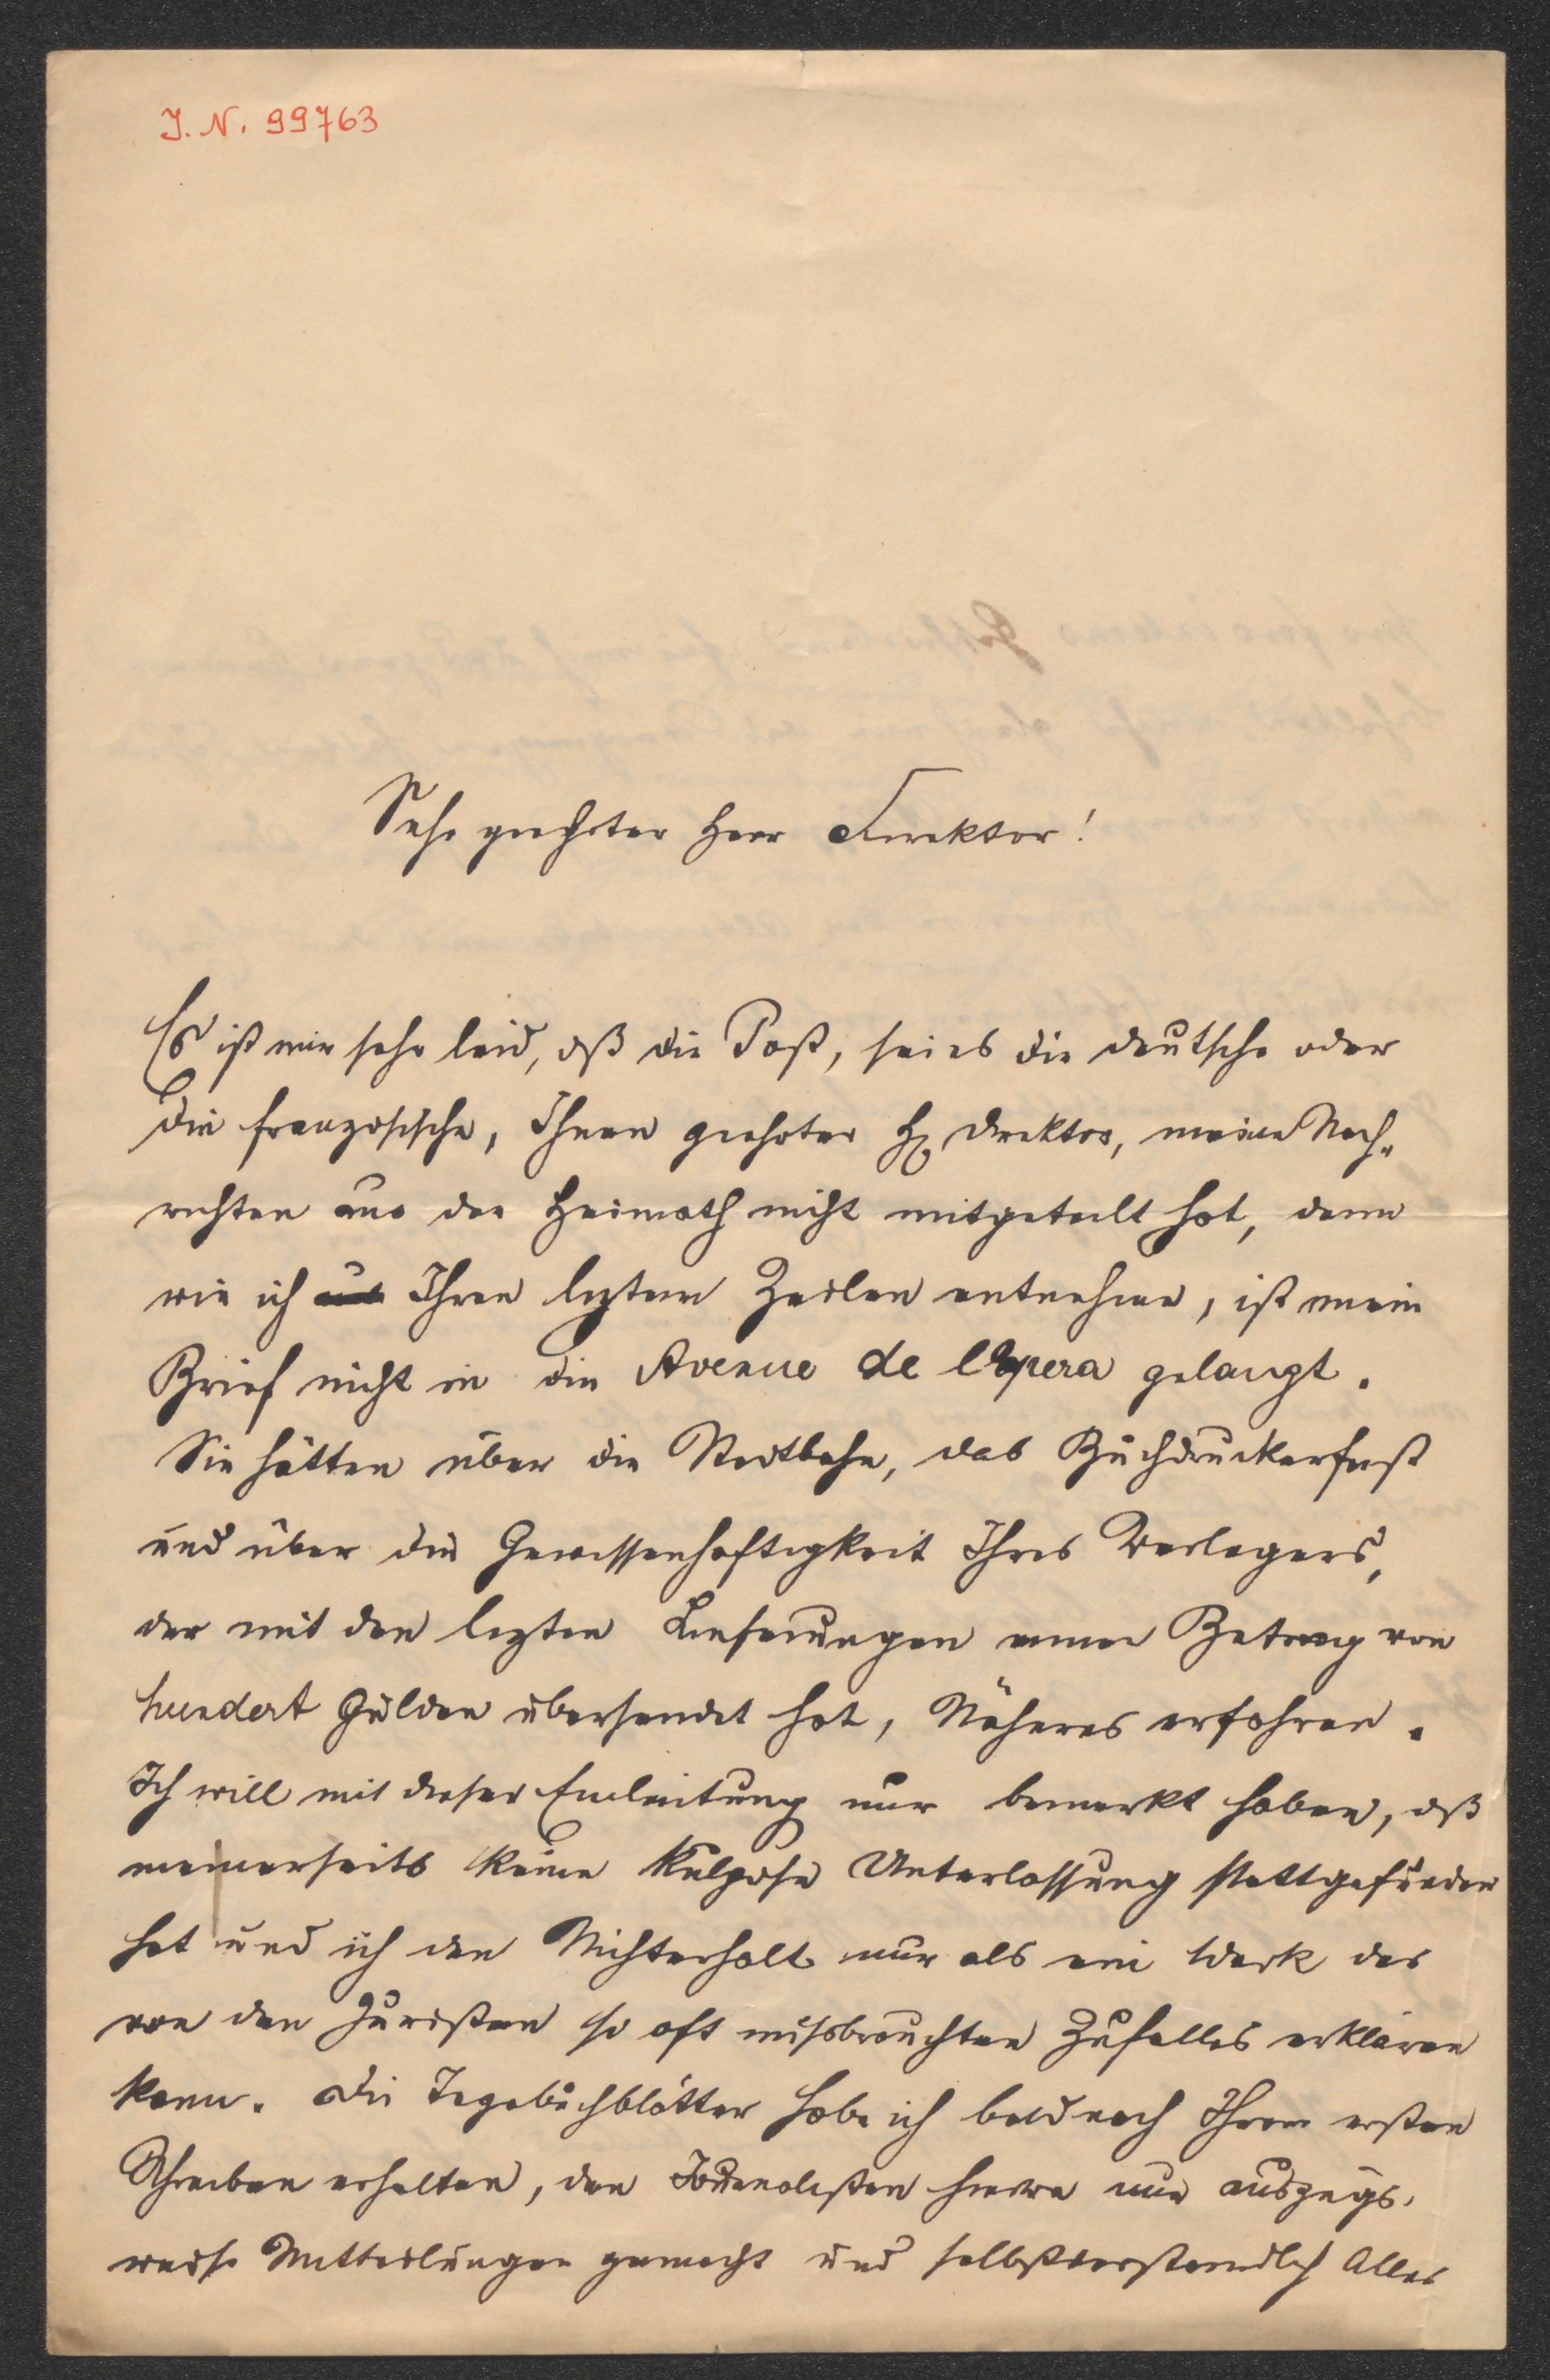 J. N. 99763
Sehr geehrter Herr Direktor!
Es ist mir sehr leid, dß die Post, sei es die deutsche oder
die französische, Ihnen geehrter H Direktor, meine Nach„
richten aus der Heimath nicht mitgeteilt hat, denn
wie ich aus Ihren lezten Zeilen entnehme, ist mein
Brief nicht in die Avenue de l'Opera gelangt.
Sie hätten über die Stadtbahn, das Buchdruckerfest
und über die Gewissenhaftigkeit Ihres Verlegers,
der mit den lezten Lieferungen einen Betrag von
hundert Gulden übersendet hat, Näheres erfahren.
Ich will mit dieser Einleitung nur bemerkt haben, dß
meinerseits keine kulpose Unterlassung stattgefunden
hat und ich den Nichterhalt nur als ein Werk des
von den Juristen so oft missbrauchten Zufalles erklären
kann. Die Tagebuchblätter habe ich bald nach Ihrem ersten
Schreiben erhalten, den Journalisten hievon nur auszugs„
weise Mitteilungen gemacht und selbstverständlich Alles